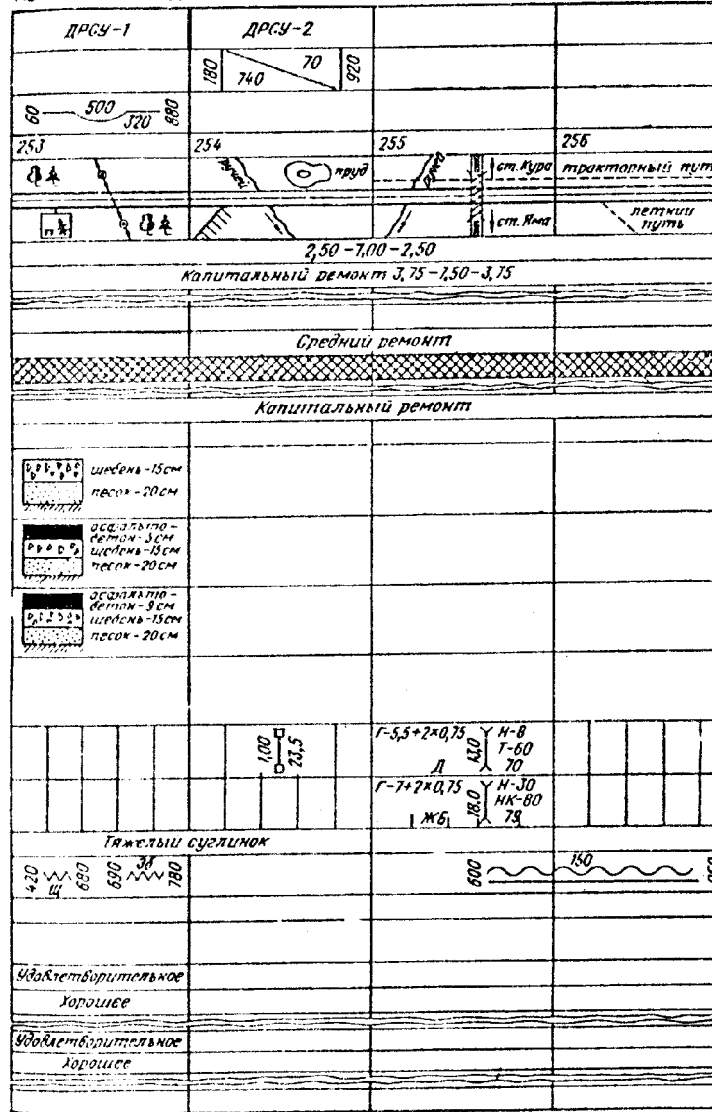 ДРСУ-1 ДРСУ-2
180 740 70 920
60 500 320 880
253 254 255 256
ручей пруд ручей ст. Кура тракторный путь
ст. Яма летний путь
2,50-7,00-2,50
Капитальный ремонт 3,75-7,50-3,75
Средний ремонт
Капитальный ремонт
щебень-15см
песок-20см
асфальто-
бетон-5см
щебень-15см
песок-20см
асфальто-
бетон-9см
щебень-15см
песок-20см
1,00 23,5 Г-5,5+2×0,75 13,0 Н-8
Т-60
Д 70
Г-7+2×0,75 18,0 Н-30
НК-80
ЖБ 79
Тяжелый суглинок
420 Щ 680 690 Зв 780 600 150
Удовлетворительное
Хорошее
Удовлетворительное
Хорошее